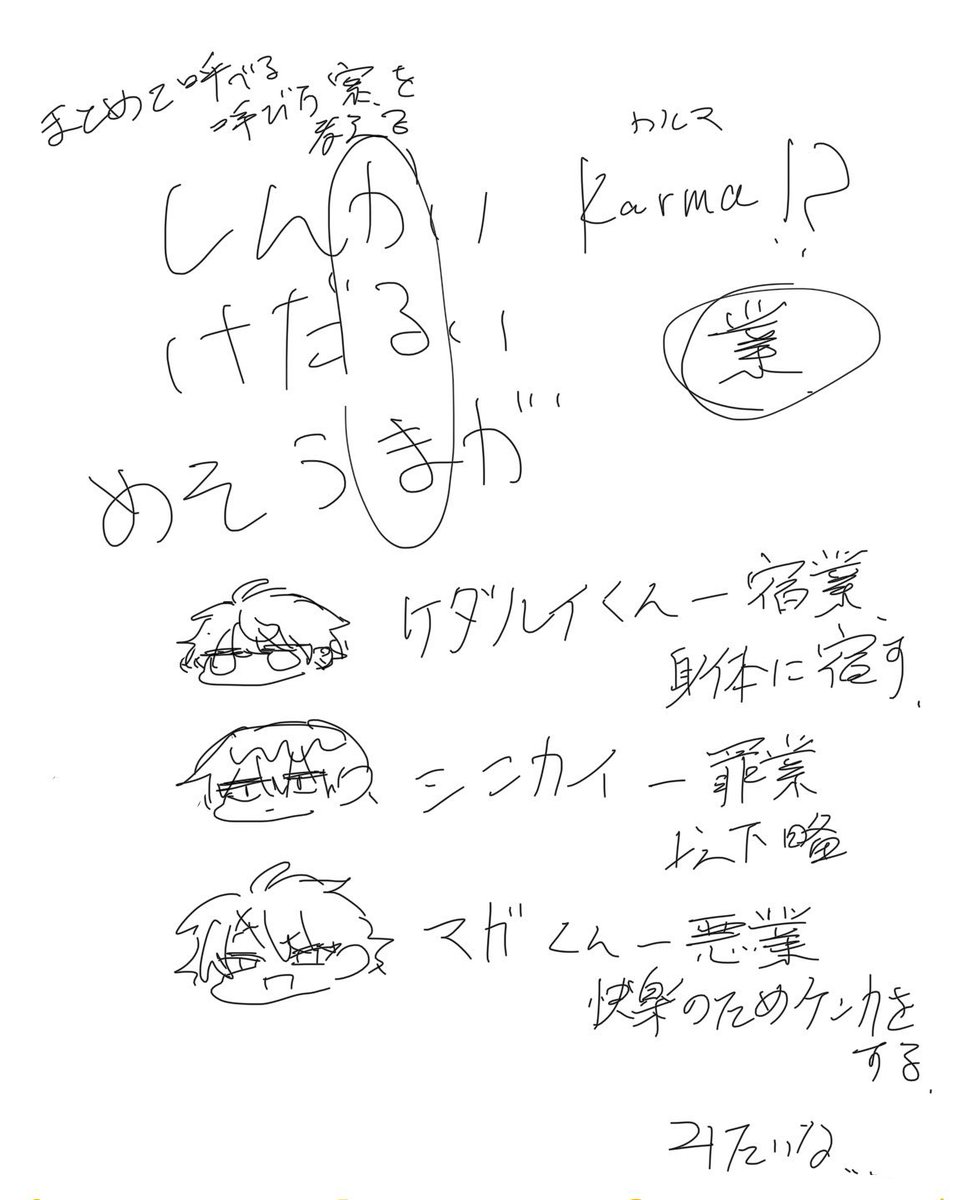 まとめて呼べる
呼び方案を
考える
しんかい
けだるい
めそうまが
カルマ
Karma!?
業
ケダルイくん－宿業
身体に宿す.
シンカイ－罪業
以下略
マガくん－悪業
快楽のためケンカを
する.
みたいな...